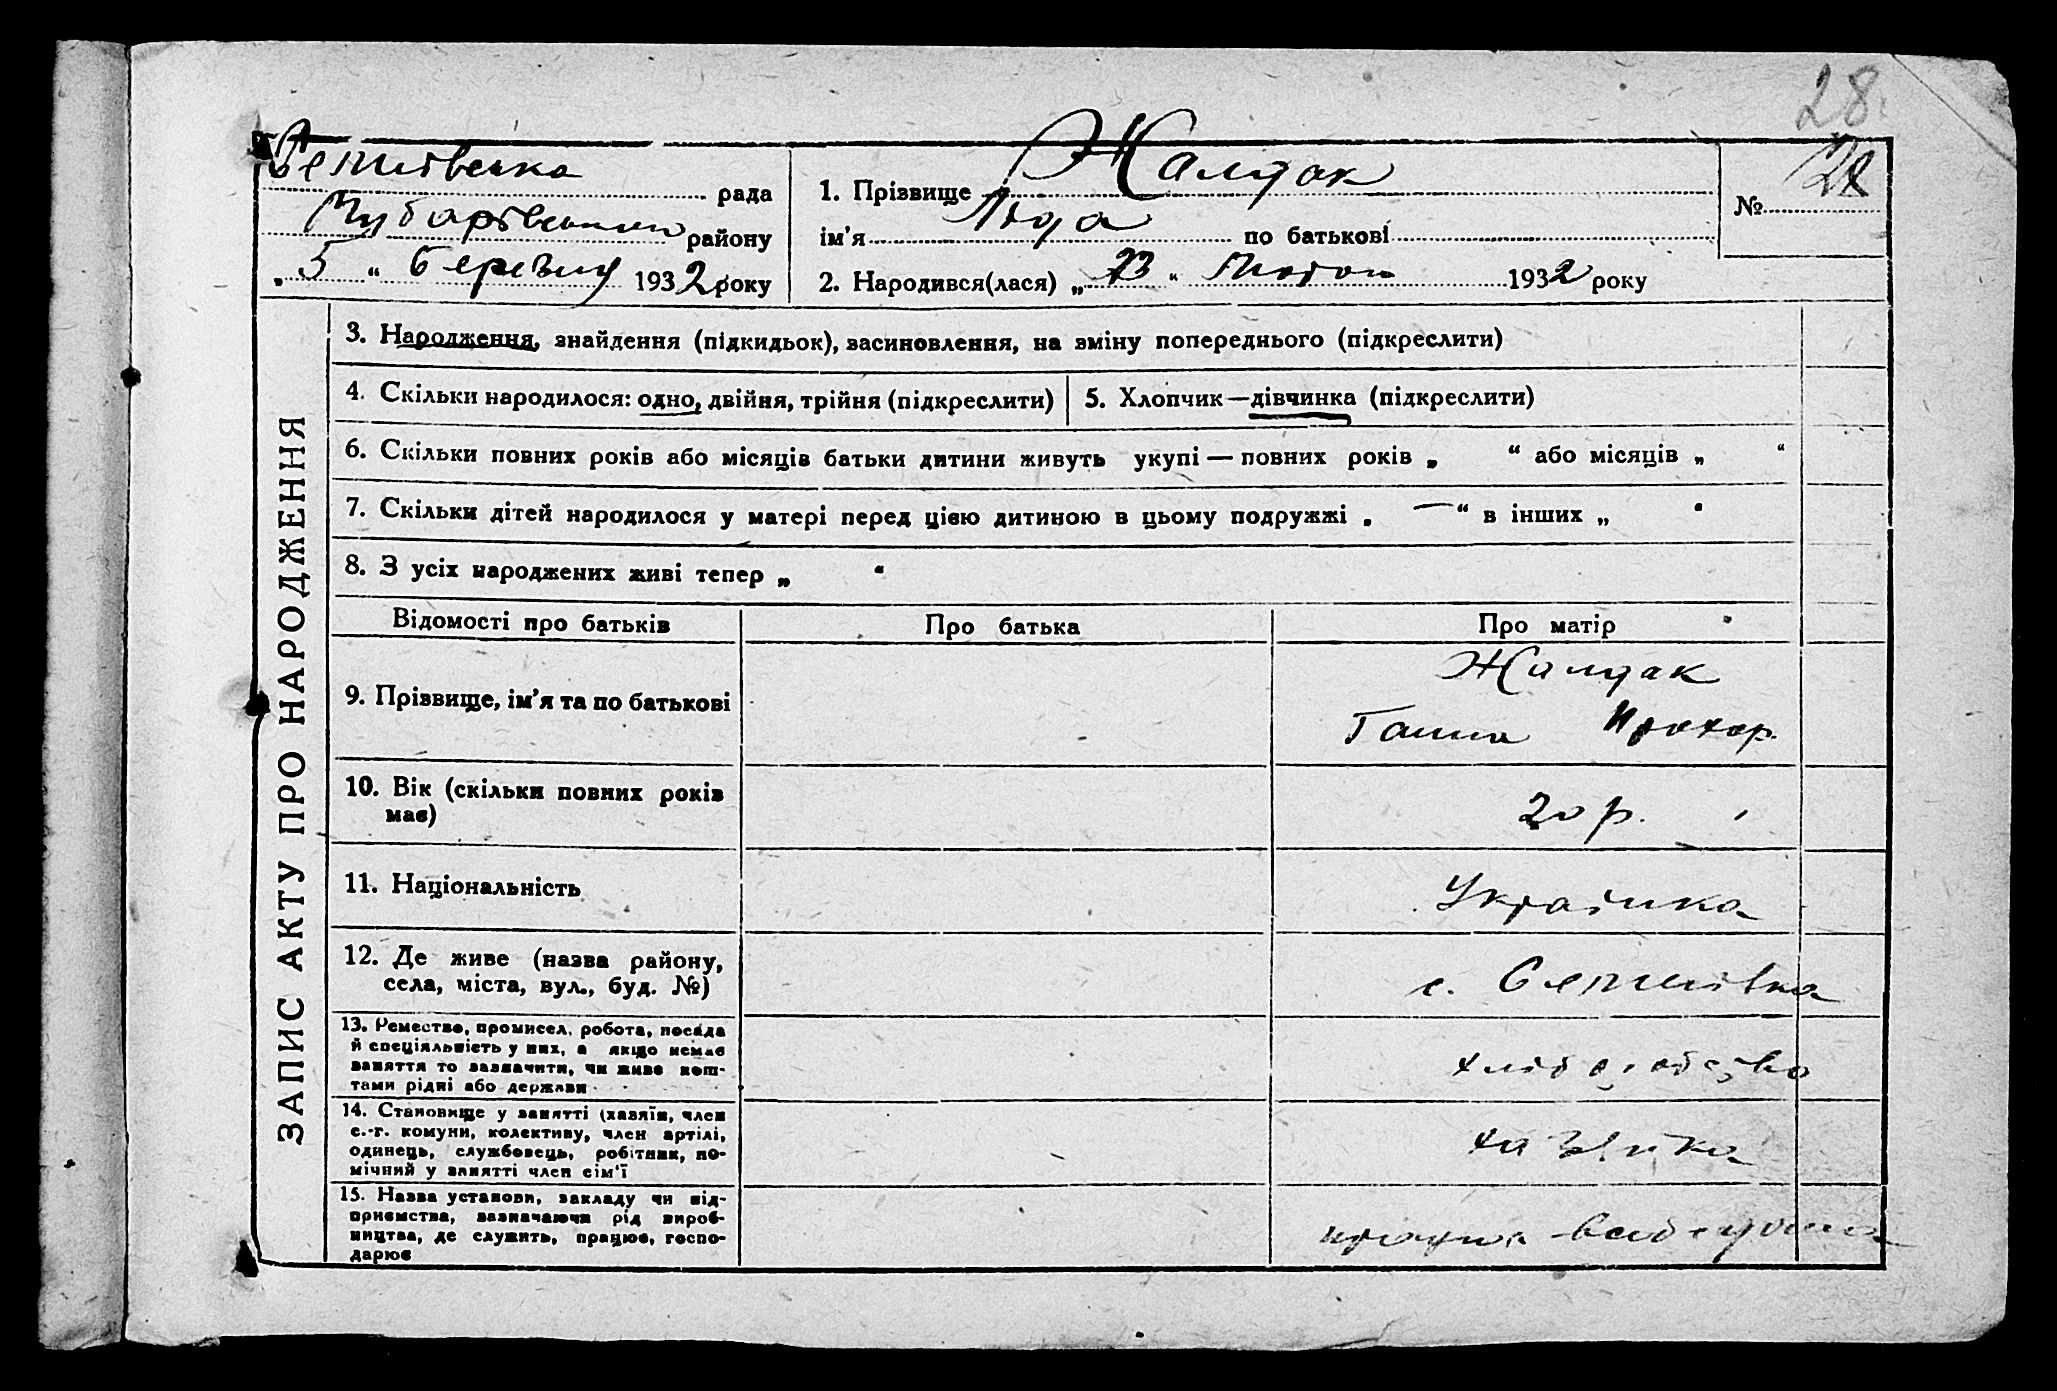 28
рада
Чубарівськи району
„ 5 “ березня 1932 року
1. Прізвище Жалдак
ім'я Люда по батькові
2. Народився(лася) „ 23 “ Лютого 1932 року
№
ЗАПИС АКТУ ПРО НАРОДЖЕННЯ
3. Народження, знайдення (підкидьок), засиновлення, на зміну попереднього (підкреслити)
4. Скільки народилося: одно, двійня, трійня (підкреслити)
5. Хлопчик—дівчинка (підкреслити)
6. Скільки повних років або місяців батьки дитини живуть укупі — повних років „ “ або місяців „ “
7. Скільки дітей народилося у матері перед цією дитиною в цьому подружжі „ — “ в інших „ “
8. З усіх народжених живі тепер „ “
Відомості про батьків
Про батька
Про матір
9. Прізвище, ім'я та по батькові
Жалдак
Ганна Прохор.
10. Вік (скільки повних років
має)
20 р.
11. Національність
Українка
12. Де живе (назва району,
села, міста, вул., буд. №)
с.
13. Ремество, промисел, робота, посада
й спеціяльність у них, а якщо немає
заняття то зазначити, чи живе кош-
тами рідні або держави
хлібороб
14. Становище у занятті (хазяїн, член
с.-г. комуни, колективу, член артілі,
одинець, службовець, робітник, по-
мічний у занятті член сім'ї
хазяйка
15. Назва установи, закладу чи під-
приємства, зазначаючи рід вироб-
ництва, де служить, працює, госпо-
дарює